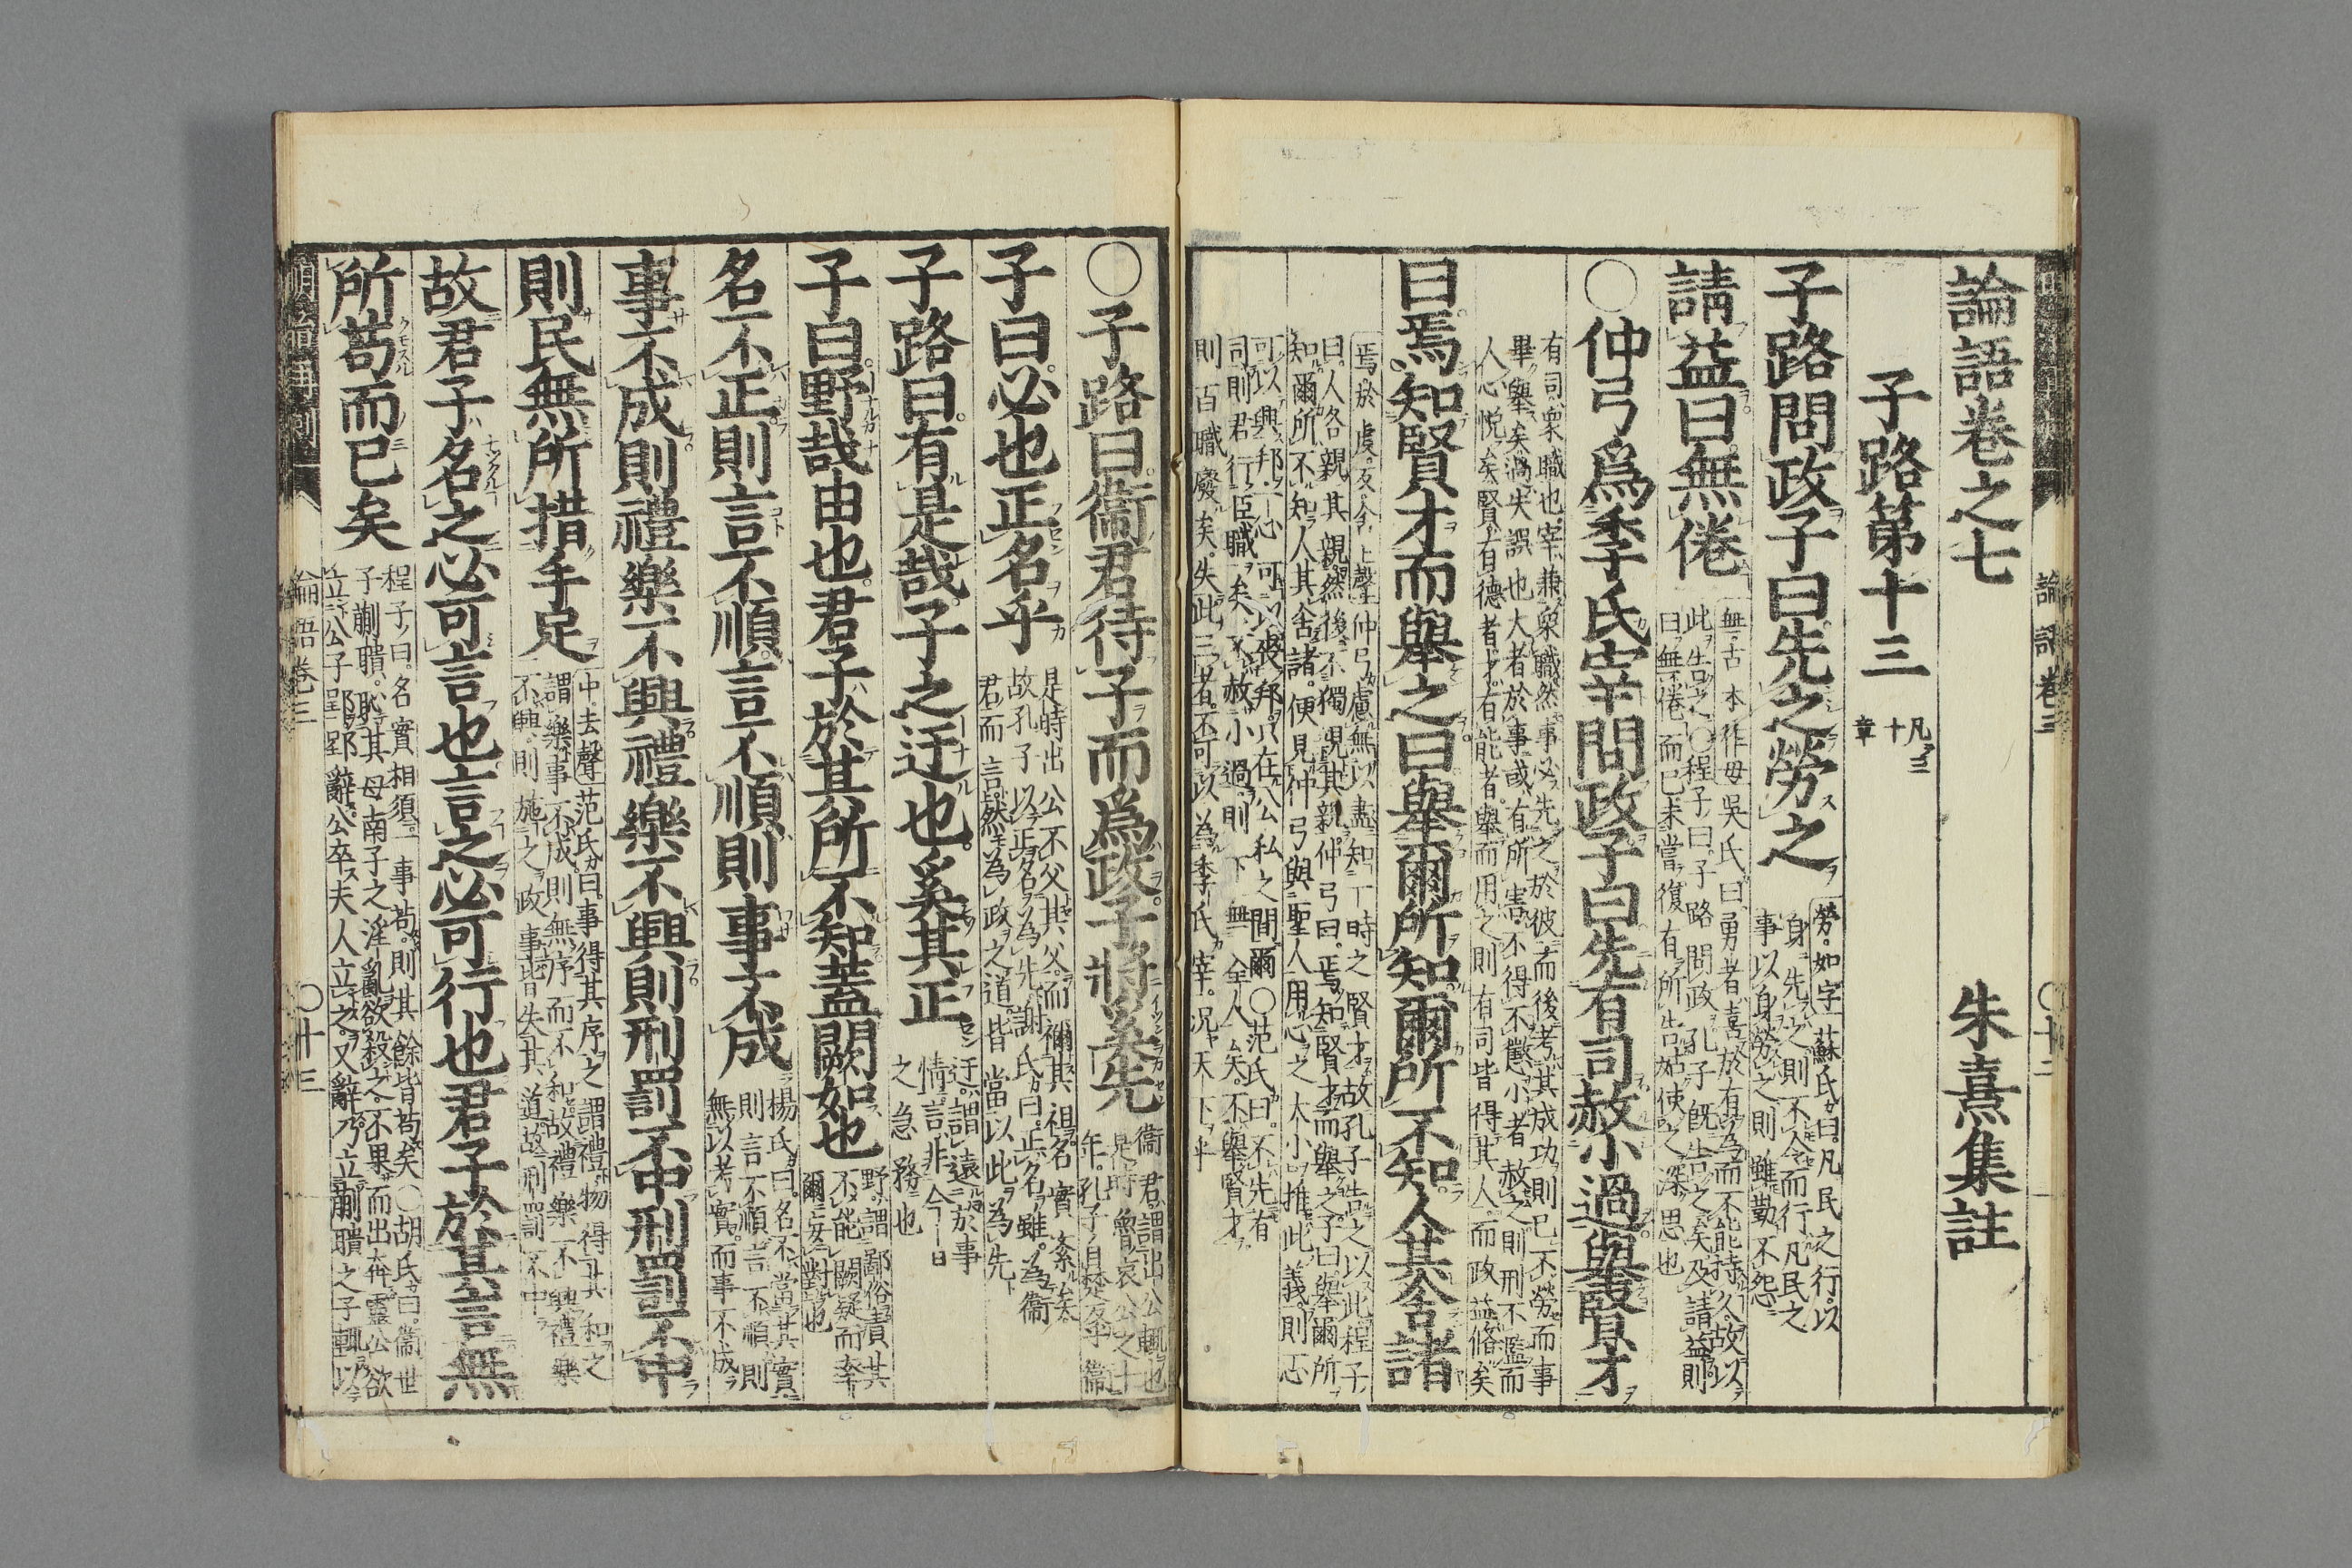 論語卷之七
朱熹集註
子路第十三
凡三
十
章
子路問政子曰先之勞之
勞如字蘇氏曰凡民之行以
身先之則不令而行凡民之
事以身勞之則雖勤不怨
請益曰無倦
無古本作毋吳氏曰勇者喜於有為而不能持久故以
此告之○程子曰子路問政孔子既告之矣及請益則
曰無倦而已未嘗復有所告姑使之深思也
○仲弓爲季氏宰問政子曰先有司赦小過舉賢才
有司衆職也宰兼衆職然事必先之於彼而後考其成功則己不勞而事
畢舉矣過失誤也大者於事或有所害不得不懲小者赦之則刑不濫而
人心悅矣賢有德者才有能者舉而用之則有司皆得其人而政益脩矣
曰焉知賢才而舉之曰舉爾所知爾所不知人其舍諸
焉於虔反舍上聲仲弓慮無以盡知一時之賢才故孔子告之以此程子
曰人各親其親然後不獨親其親仲弓曰焉知賢才而舉之子曰舉爾所
知爾所不知人其舍諸便見仲弓與聖人用心之大小推此義則一心
可以興邦一心可以喪邦只在公私之間爾○范氏曰不先有
司則君行臣職矣不赦小過則下無全人矣不舉賢才
則百職廢矣失此三者不可以為季氏宰況天下乎
○子路曰衞君待子而爲政子將奚先
衞君謂出公輒也
是時魯哀公之十
年孔子自楚反乎衞
子曰必也正名乎
是時出公不父其父而禰其祖名實紊矣
故孔子以正名為先謝氏曰正名雖為衞
君而言然為政之道皆當以此為先
子路曰有是哉子之迂也奚其正
迂謂遠於事
情言非今日
之急務也
子曰野哉由也君子於其所不知蓋闕如也
野謂鄙俗責其
不能闕疑而率
爾妄對也
名不正則言不順言不順則事不成
楊氏曰名不當其實
則言不順言不順則
無以考實而事不成
事不成則禮樂不興禮樂不興則刑罰不中刑罰不中
則民無所措手足
中去聲范氏曰事得其序之謂禮物得其和之
謂樂事不成則無序而不和故禮樂不興禮樂
不興則施之政事皆失其道故刑罰不中
故君子名之必可言也言之必可行也君子於其言無
所苟而已矣
程子曰名實相須一事苟則其餘皆苟矣○胡氏曰衞世
子蒯聵恥其母南子之淫亂欲殺之不果而出奔靈公欲
立公子郢郢辭公卒夫人立之又辭乃立蒯聵之子輒以
論語卷三
○十三